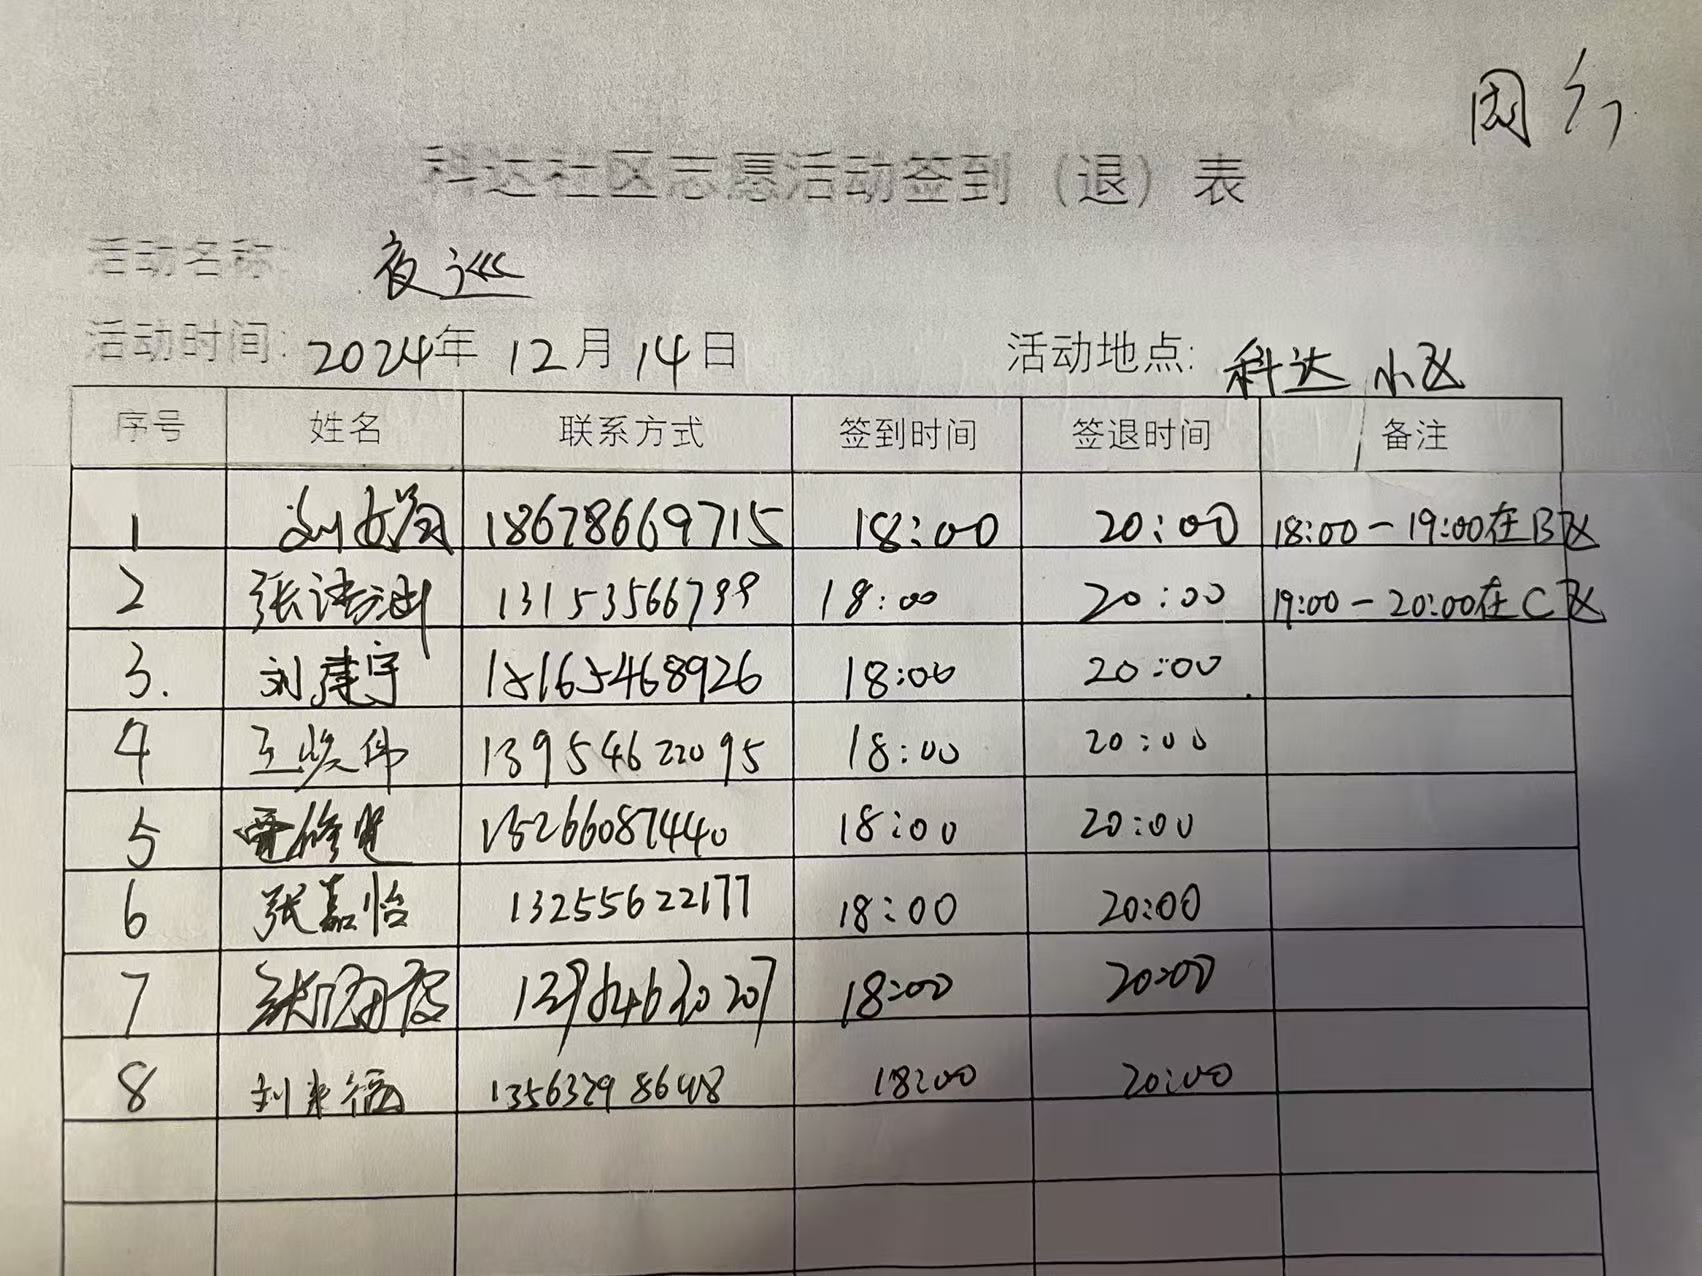 科达社区志愿活动签到（退）表
活动名称: 夜巡
活动时间: 2024年 12月 14日 活动地点: 科达小区
序号 姓名 联系方式 签到时间 签退时间 备注
1 18678669715 18:00 20:00 18:00-19:00在B区
2 张 13153566799 18:00 20:00 19:00-20:00在C区
3. 刘建宇 18165468926 18:00 20:00
4 王 伟 13954622095 18:00 20:00
5 修 15266087440 18:00 20:00
6 张嘉怡 13255622177 18:00 20:00
7 张 18:00 20:00
8 刘来福 18:00 20:00